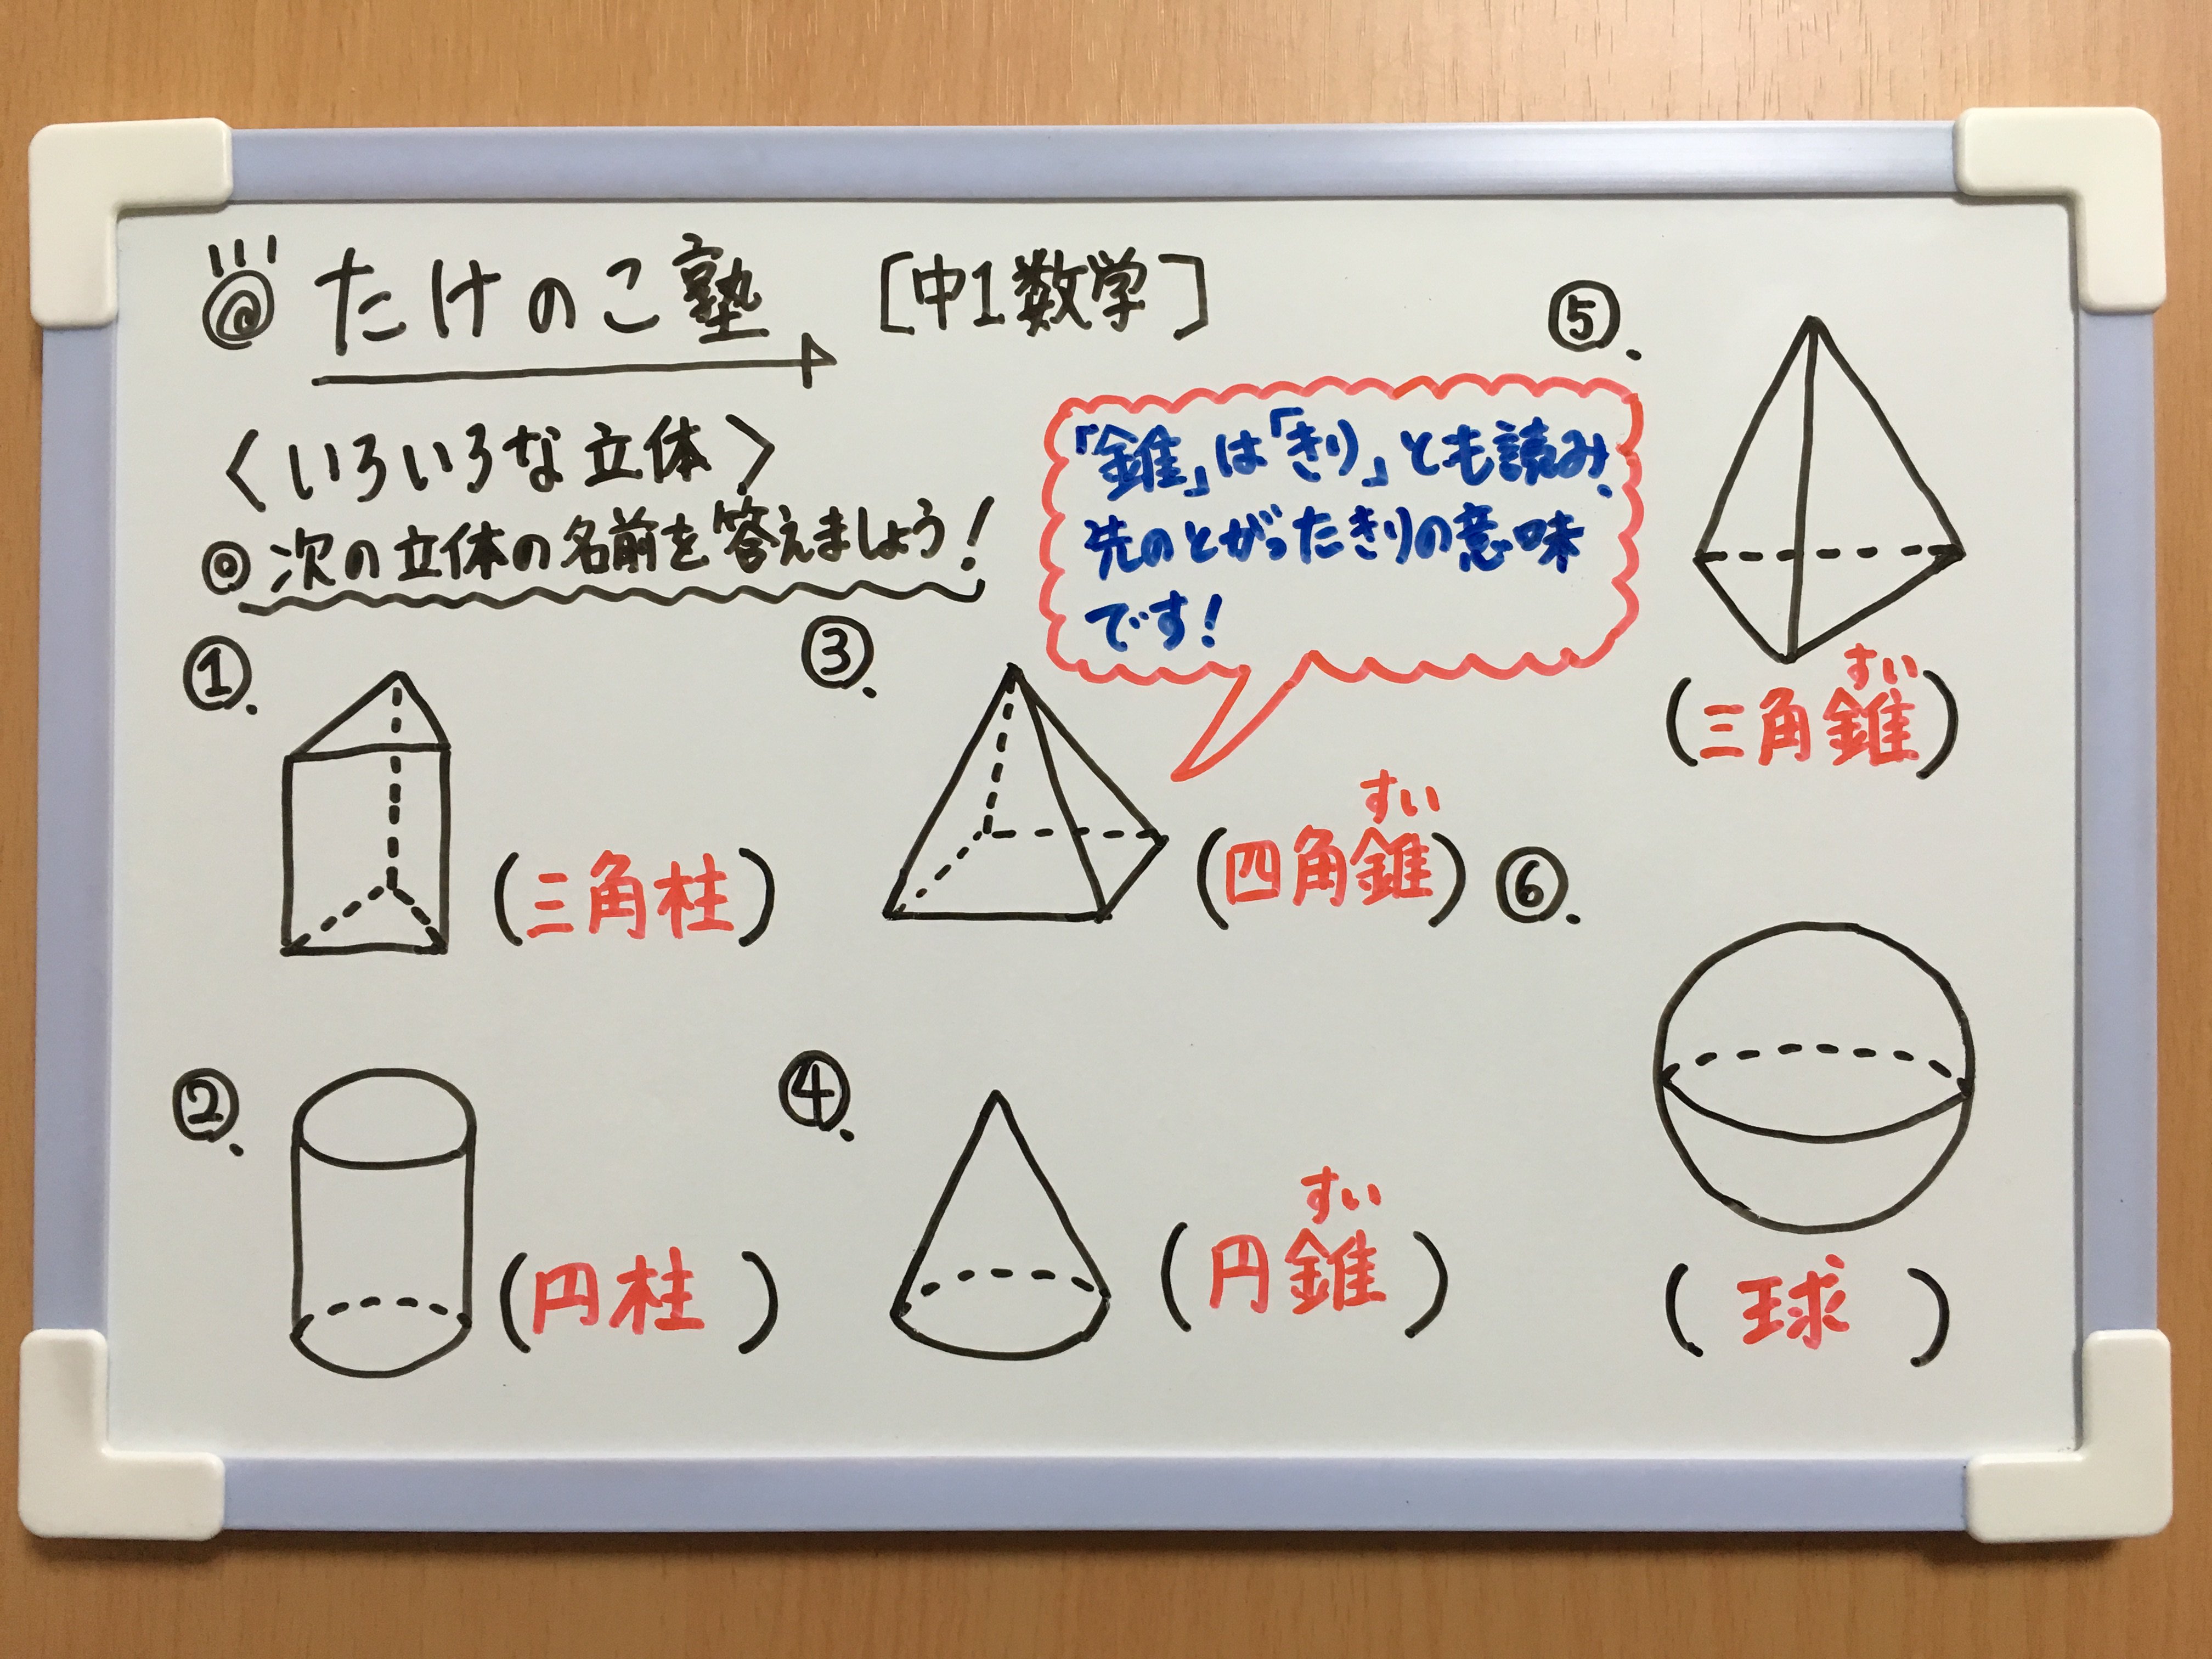 たけのこ塾 [中1数学]
〈いろいろな立体〉
◎次の立体の名前を答えましょう!
①.
(三角柱)
②.
(円柱)
③.
「錐」は「きり」とも読み、
先のとがったきりの意味
です!
すい
(四角錐)
④.
すい
(円錐)
⑤.
すい
(三角錐)
⑥.
(球)